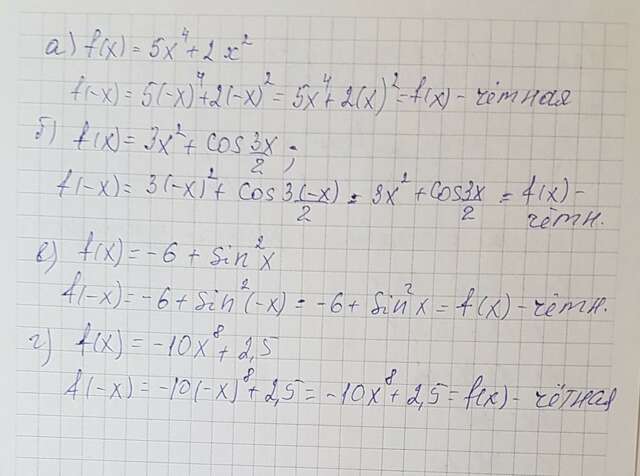 а) f(x) = 5x⁴ + 2x²
f(-x) = 5(-x)⁴ + 2(-x)² = 5x⁴ + 2(x)² = f(x) - чётная
б) f(x) = 3x² + cos 3x/2 ;
f(-x) = 3(-x)² + cos 3(-x)/2 = 3x² + cos 3x/2 = f(x) -
чётн.
в) f(x) = -6 + sin²x
f(-x) = -6 + sin²(-x) = -6 + sin²x = f(x) - чётн.
г) f(x) = -10x⁸ + 2,5
f(-x) = -10(-x)⁸ + 2,5 = -10x⁸ + 2,5 = f(x) - чётная